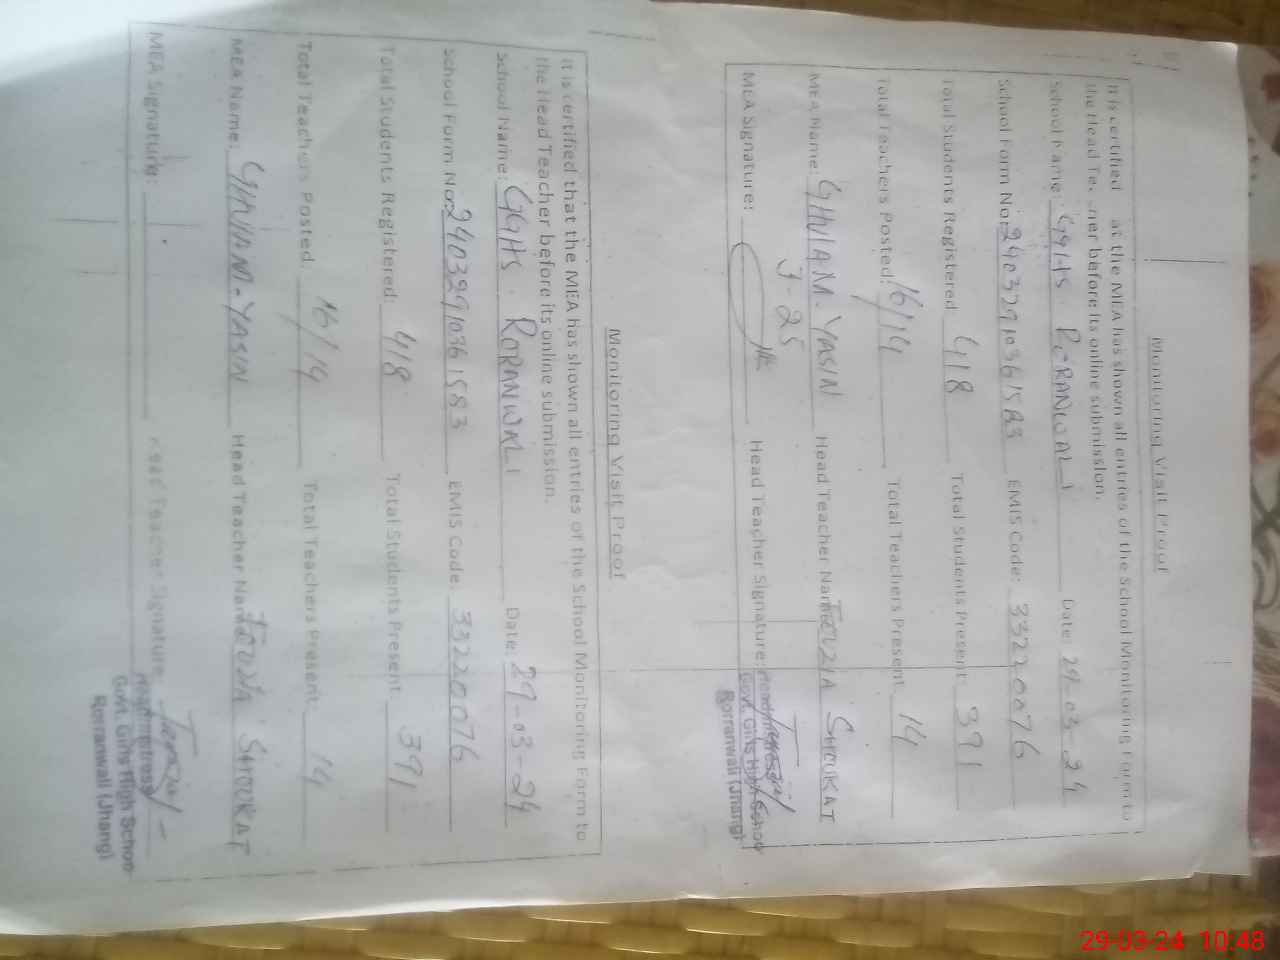 Monitoring Visit Proof
It is certified at the MEA has shown all entries of the School Monitoring Form to
the Head Te ner before its online submission.
School Name: GGHS RORANWALI Date: 29-03-24
School Form No: 24032910361583 EMIS Code: 33220076
Total Students Registered 418 Total Students Present 391
Total Teachers Posted: 16/14 Total Teachers Present 14
MEA Name: GHULAM YASIN Head Teacher Name FOUZIA SHOUKAT
J-25
MEA Signature: Head Teacher Signature:
Headmistress
Govt. Girls High School
Rorranwali (Jhang)
Monitoring Visit Proof
It is certified that the MEA has shown all entries of the School Monitoring Form to
the Head Teacher before its online submission.
School Name: GGHS RORANWALI Date: 29-03-24
School Form No: 24032910361583 EMIS Code: 33220076
Total Students Registered: 418 Total Students Present 391
Total Teachers Posted 16/14 Total Teachers Present 14
MEA Name: GHULAM-YASIN Head Teacher Name FOUZIA SHOUKAT
MEA Signature: Head Teacher Signature:
Headmistress
Govt. Girls High Schoo
Rorranwali (Jhang)
29-03-24 10:48